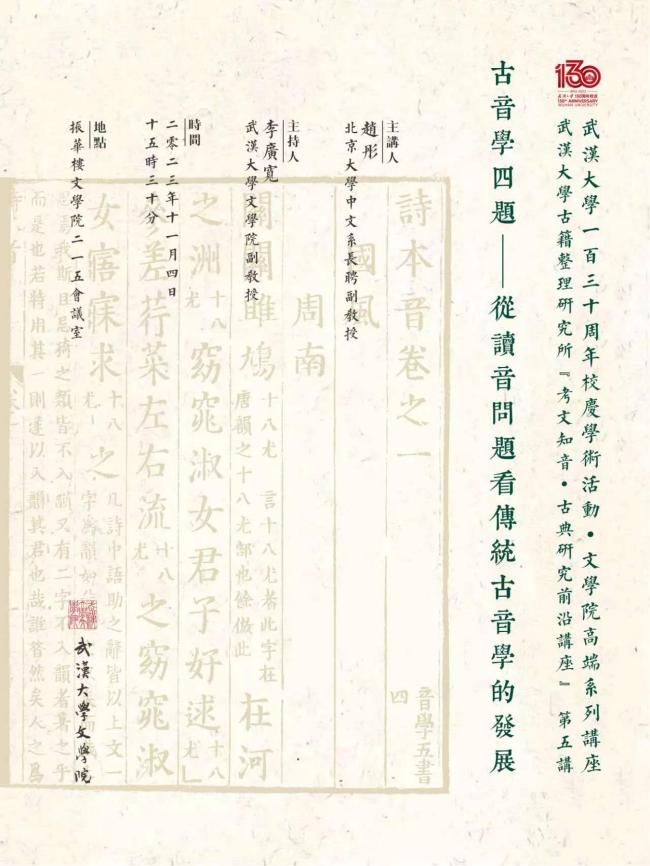 武漢大學一百三十周年校慶學術活動・文學院高端系列講座
武漢大學古籍整理研究所『考文知音・古典研究前沿講座』 第五講
130
130th ANNIVERSARY
WUHAN UNIVERSITY
古音學四題——從讀音問題看傳統古音學的發展
主講人
趙彤
北京大學中文系長聘副教授
主持人
李廣寬
武漢大學文學院副教授
時間
二零二三年十一月四日
十五時三十分
地點
振華樓文學院二一五會議室
武漢大學文學院
詩本音卷之一
音學五書
四
國風
周南
關關雎鳩
十八尤 言十八尤者此字在
唐韻之十八尤部也餘倣此
在河
之洲
十八
尤
窈窕淑女君子好逑
十八
尤
差荇菜左右流
十八
尤
之窈窕淑
女寤寐求
十八
尤
之
凡詩中語助之辭皆以上文一
字爲韻如
斯且忌猗之類皆不入韻又有二字不入韻者著之乎
而是也若特用其一則遂以入韻其君也哉誰昔然矣人之爲